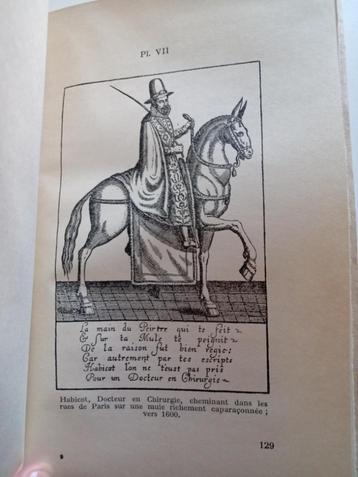 Pl. VII
La main du Peirtre qui te feit
& sur ta Mule te peignit
De la raison fut bien régie:
Car autrement par tes escripts
Habicot lon ne teust pas pris
Pour un Docteur en Chirurgie
Habicot, Docteur en Chirurgie, cheminant dans les
rues de Paris sur une mule richement caparaçonnée ;
vers 1600.
129
9